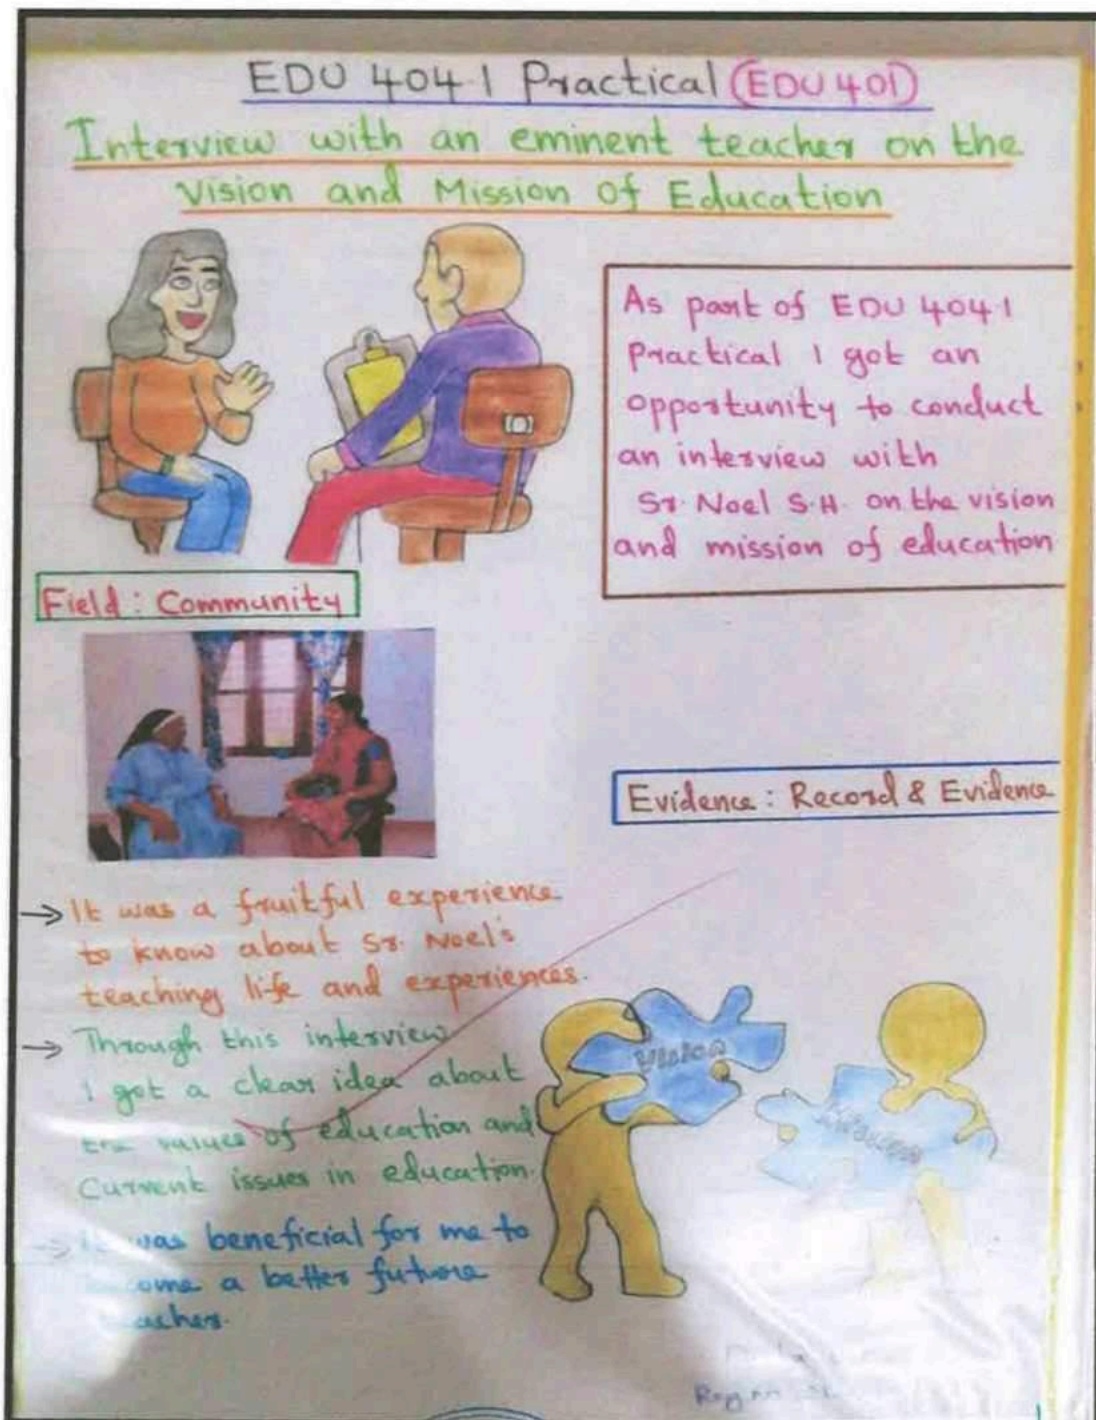 EDU 404.1 Practical (EDU 401)
Interview with an eminent teacher on the
Vision and Mission of Education
As part of EDU 404.1
Practical I got an
opportunity to conduct
an interview with
Sr. Noel S.H. on the vision
and mission of education
Field : Community
Evidence : Record & Evidence
→ It was a fruitful experience
to know about Sr. Noel's
teaching life and experiences.
→ Through this interview
I got a clear idea about
the values of education and
Current issues in education.
→ It was beneficial for me to
become a better future
teacher.
Vision
Mission